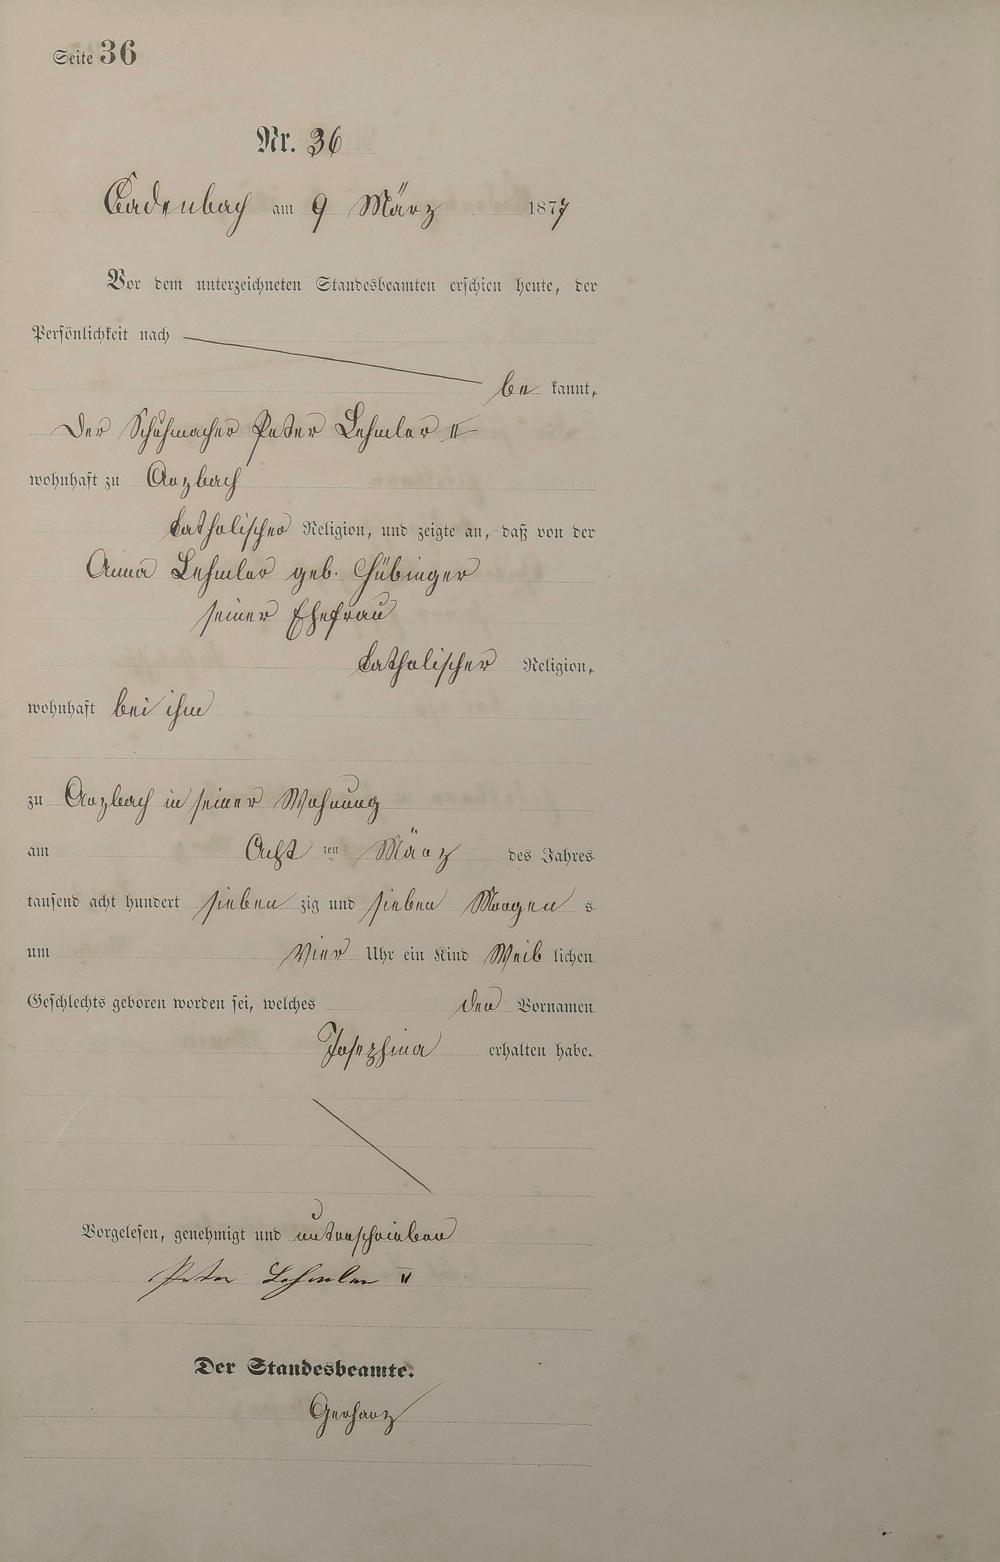 Seite 36
Nr. 36
Cadenbach am 9 März 1877
Vor dem unterzeichneten Standesbeamten erschien heute, der
Persönlichkeit nach
be kannt,
der Schuhmacher Peter Lehmler II
wohnhaft zu Arzbach
katholischer Religion, und zeigte an, daß von der
Anna Lehmler geb. Hübinger
seiner Ehefrau
katholischer Religion,
wohnhaft bei ihm
zu Arzbach in seiner Wohnung
am Acht ten März des Jahres
tausend acht hundert sieben zig und sieben Morgen s
um Vier Uhr ein Kind Weib lichen
Geschlechts geboren worden sei, welches den Vornamen
Josephina erhalten habe.
Vorgelesen, genehmigt und unterschrieben
Peter Lehmler II
Der Standesbeamte.
Gerharz